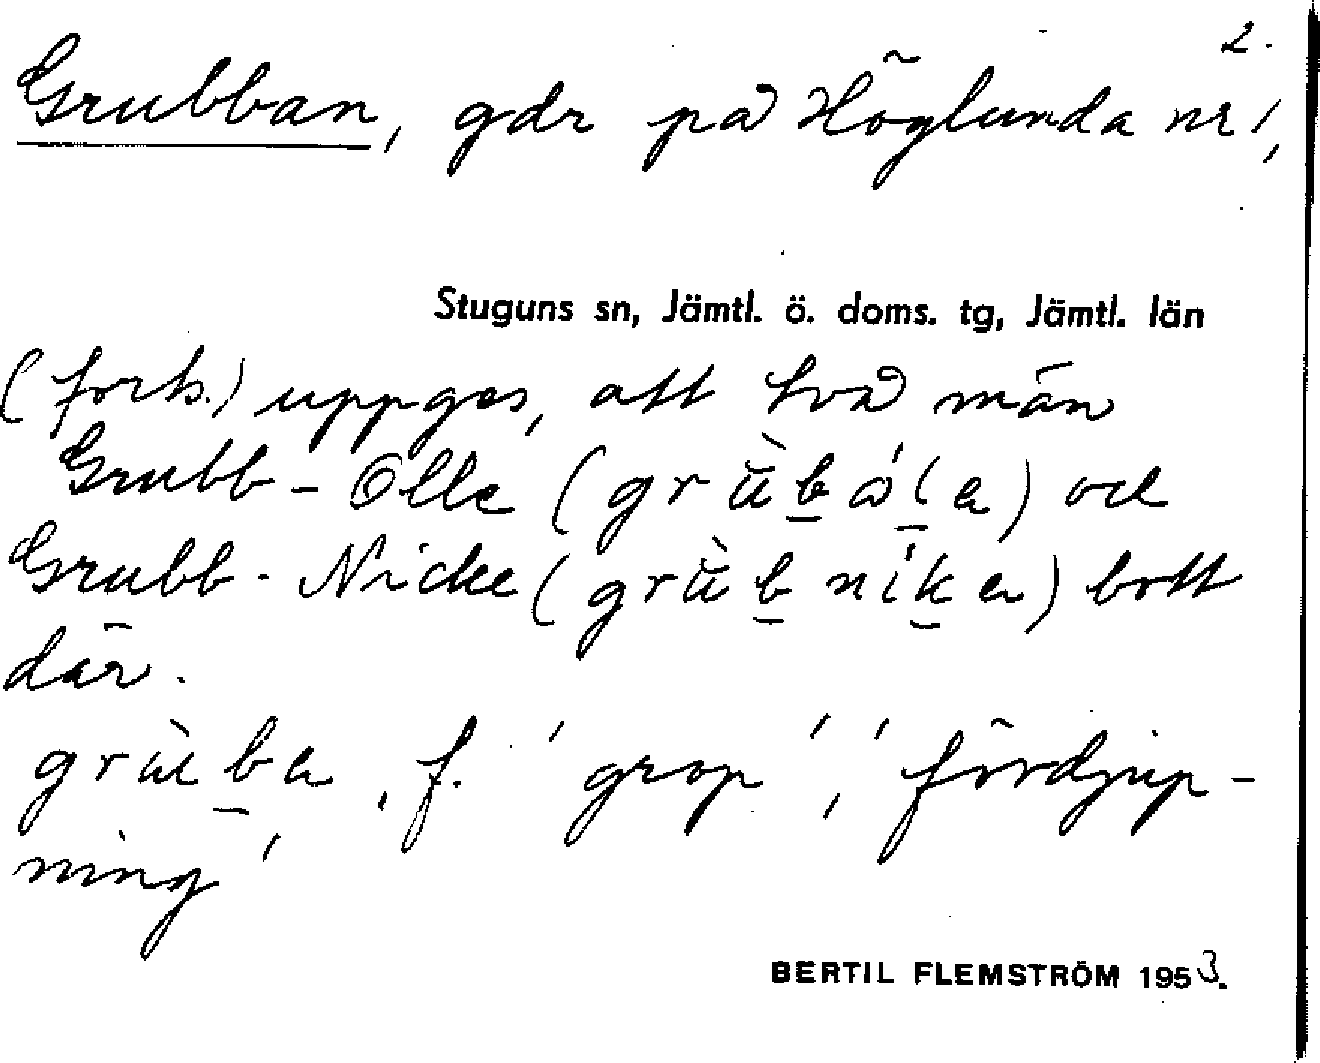 2.
Grubban, gdr på Höglunda nr 1,
Stuguns sn, Jämtl. ö. doms. tg, Jämtl. län
(forts.) uppges, att två män
Grubb-Olle ( ) och
Grubb-Nicke ( ) bott
där.
f. 'grop', 'fördjup-
ning'
BERTIL FLEMSTRÖM 1953.